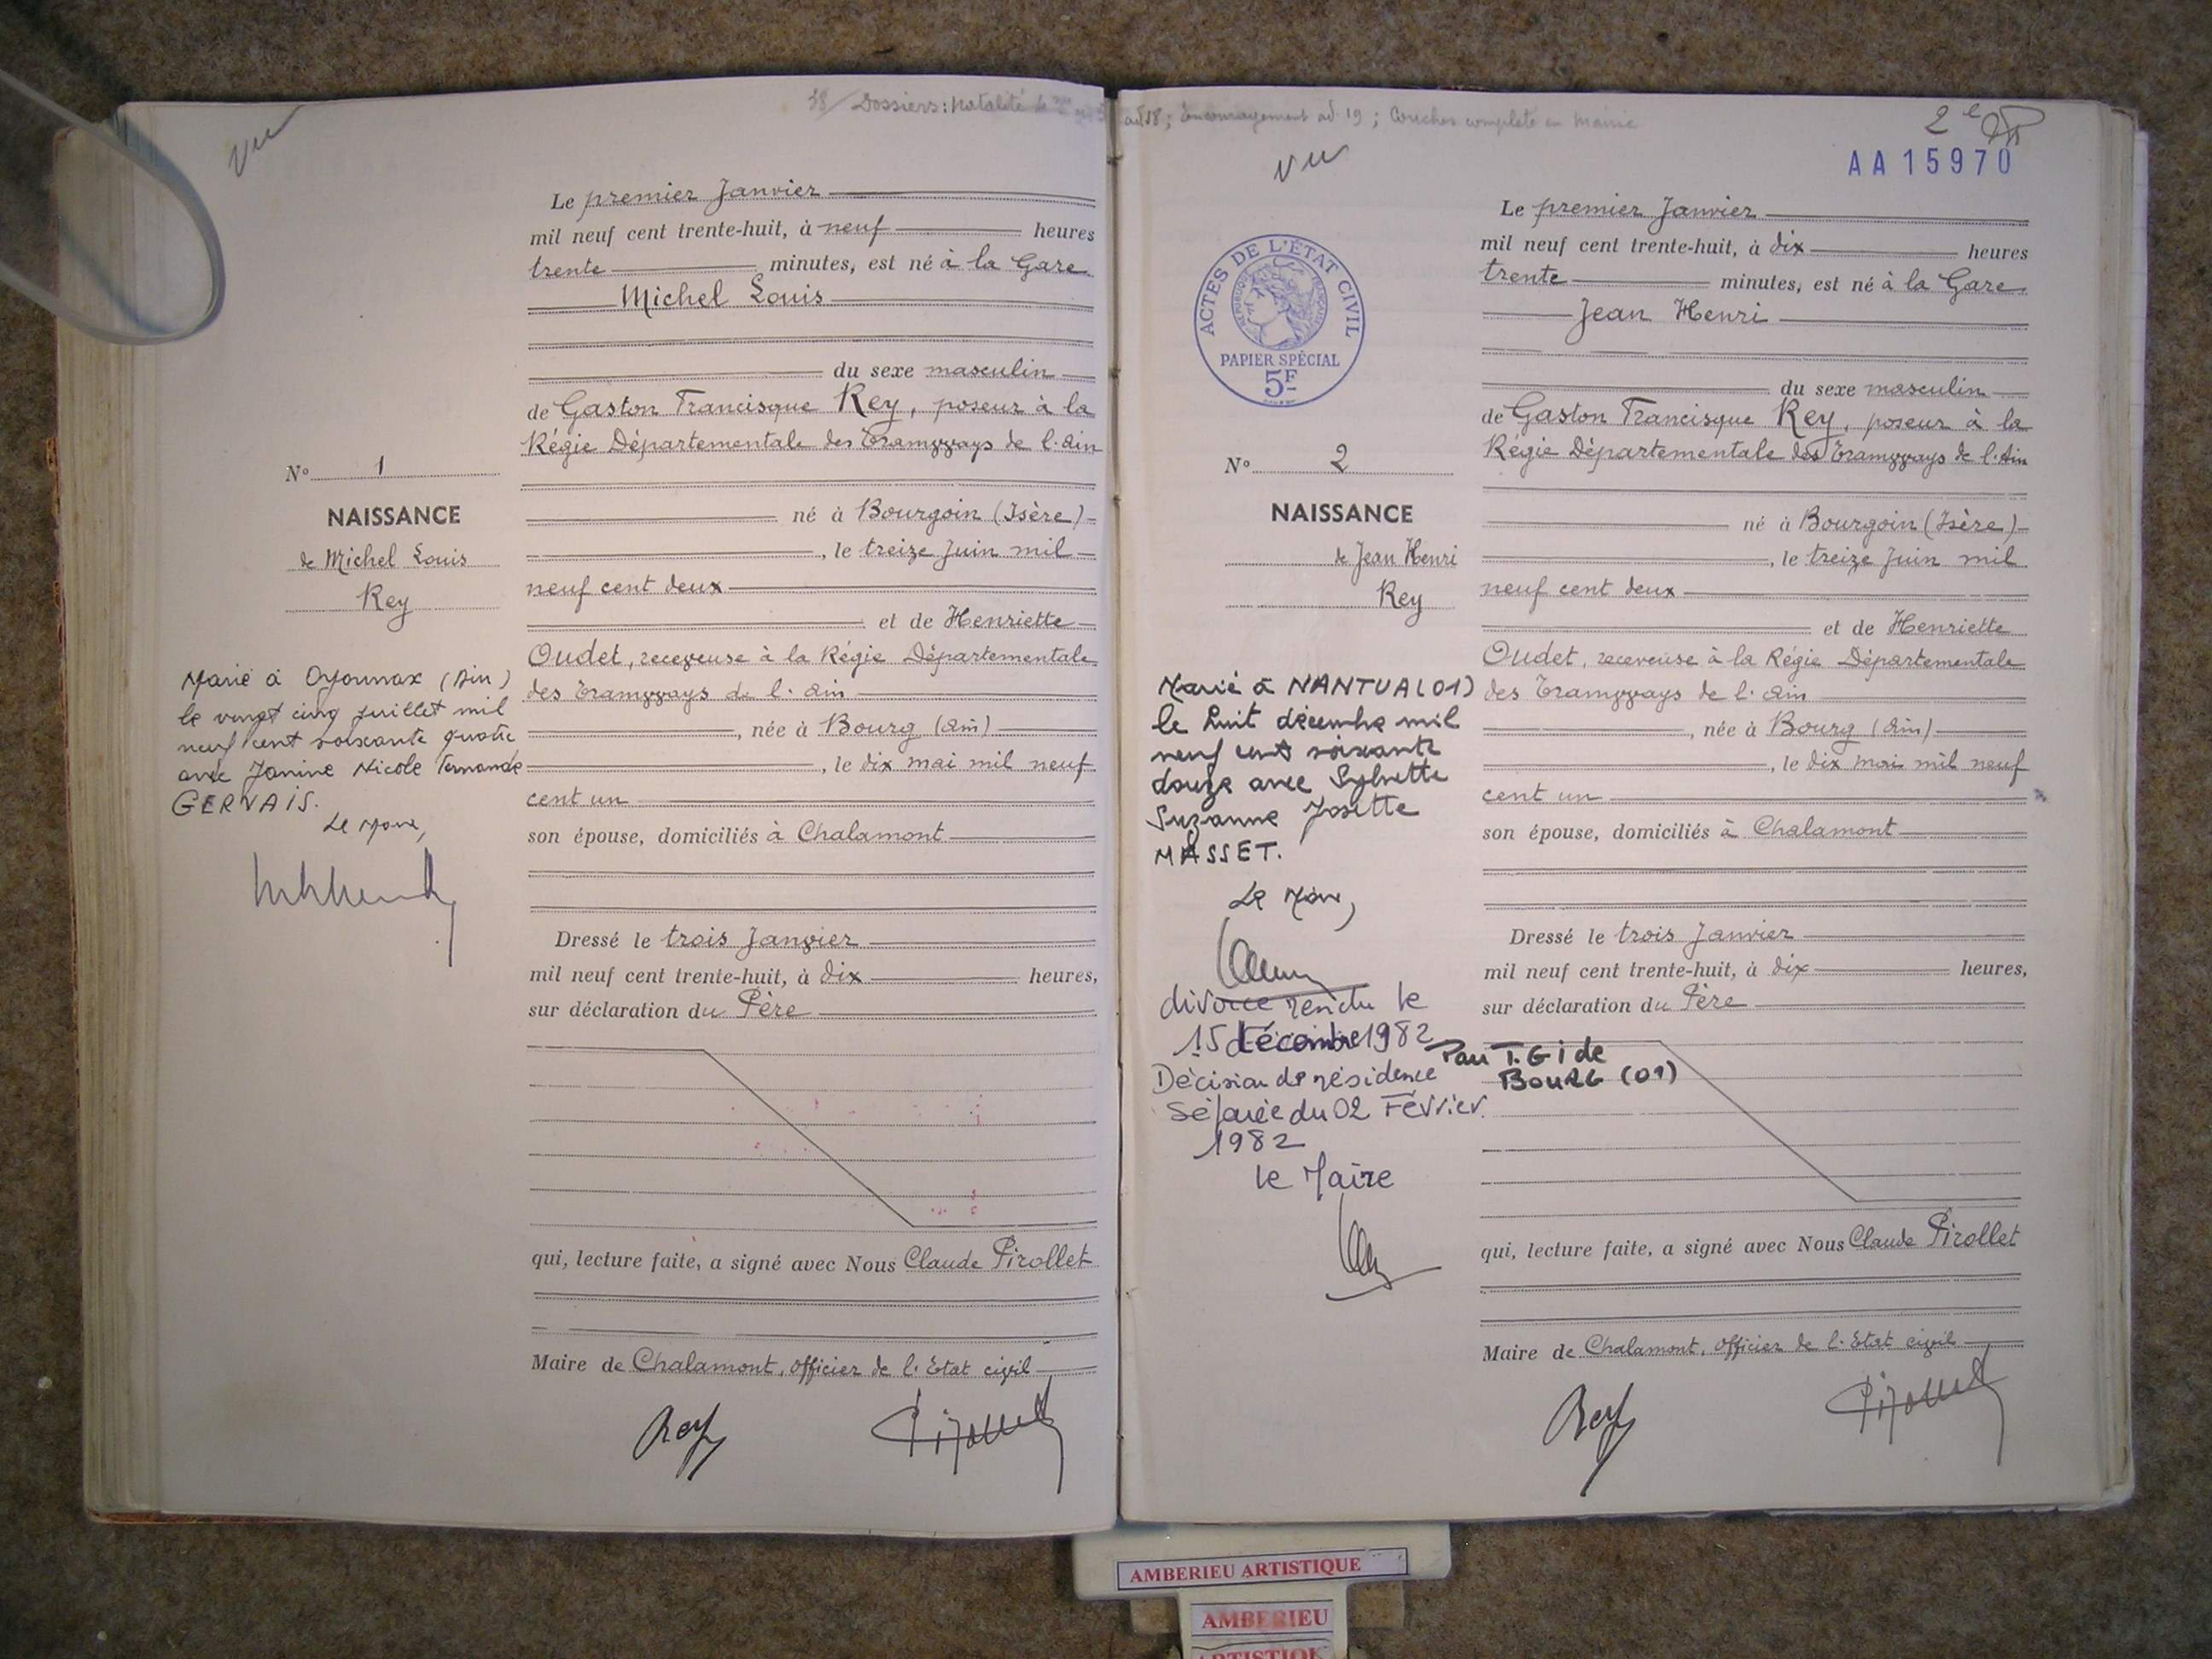 38/ Dossiers: Natalité
ad 18; Encouragement ad. 19; Couches complète en Mairie
Vu
Le premier Janvier
mil neuf cent trente-huit, à neuf heures
trente minutes, est né à la Gare
Michel Louis
du sexe masculin
de Gaston Francisque Rey, poseur à la
Régie Départementale des Tramways de l'Ain
né à Bourgoin (Isère)
, le treize Juin mil
neuf cent deux
et de Henriette
Oudet, receveuse à la Régie Départementale
des Tramways de l'Ain
, née à Bourg (Ain)
, le dix mai mil neuf
cent un
son épouse, domiciliés à Chalamont
Dressé le trois Janvier
mil neuf cent trente-huit, à dix heures,
sur déclaration du Père
qui, lecture faite, a signé avec Nous Claude Pirollet
Maire de Chalamont, Officier de l'Etat civil
Rey
Pirollet
N° 1
NAISSANCE
de Michel Louis
Rey
Marié à Oyonnax (Ain)
le vingt cinq juillet mil
neuf cent soixante quatre
avec Janine Nicole Fernande
GERVAIS.
Le Maire,
2e
AA 15970
Vu
ACTES DE L'ÉTAT CIVIL
RÉPUBLIQUE FRANÇAISE
PAPIER SPÉCIAL
5F
Le premier Janvier
mil neuf cent trente-huit, à dix heures
trente minutes, est né à la Gare
Jean Henri
du sexe masculin
de Gaston Francisque Rey, poseur à la
Régie Départementale des Tramways de l'Ain
né à Bourgoin (Isère)
, le treize Juin mil
neuf cent deux
et de Henriette
Oudet, receveuse à la Régie Départementale
des Tramways de l'Ain
, née à Bourg (Ain)
, le dix mai mil neuf
cent un
son épouse, domiciliés à Chalamont
Dressé le trois Janvier
mil neuf cent trente-huit, à dix heures,
sur déclaration du Père
qui, lecture faite, a signé avec Nous Claude Pirollet
Maire de Chalamont, Officier de l'Etat civil
Rey
Pirollet
N° 2
NAISSANCE
de Jean Henri
Rey
Marié à NANTUA (01)
le huit décembre mil
neuf cent soixante
douze avec Sylvette
Suzanne Josette
MASSET.
Le Maire,
divorce rendu le
15 décembre 1982 Par T.G i de
BOURG (01)
Décision de résidence
Séparée du 02 Février
1982
le Maire
AMBERIEU ARTISTIQUE
AMBERIEU
ARTISTIQUE